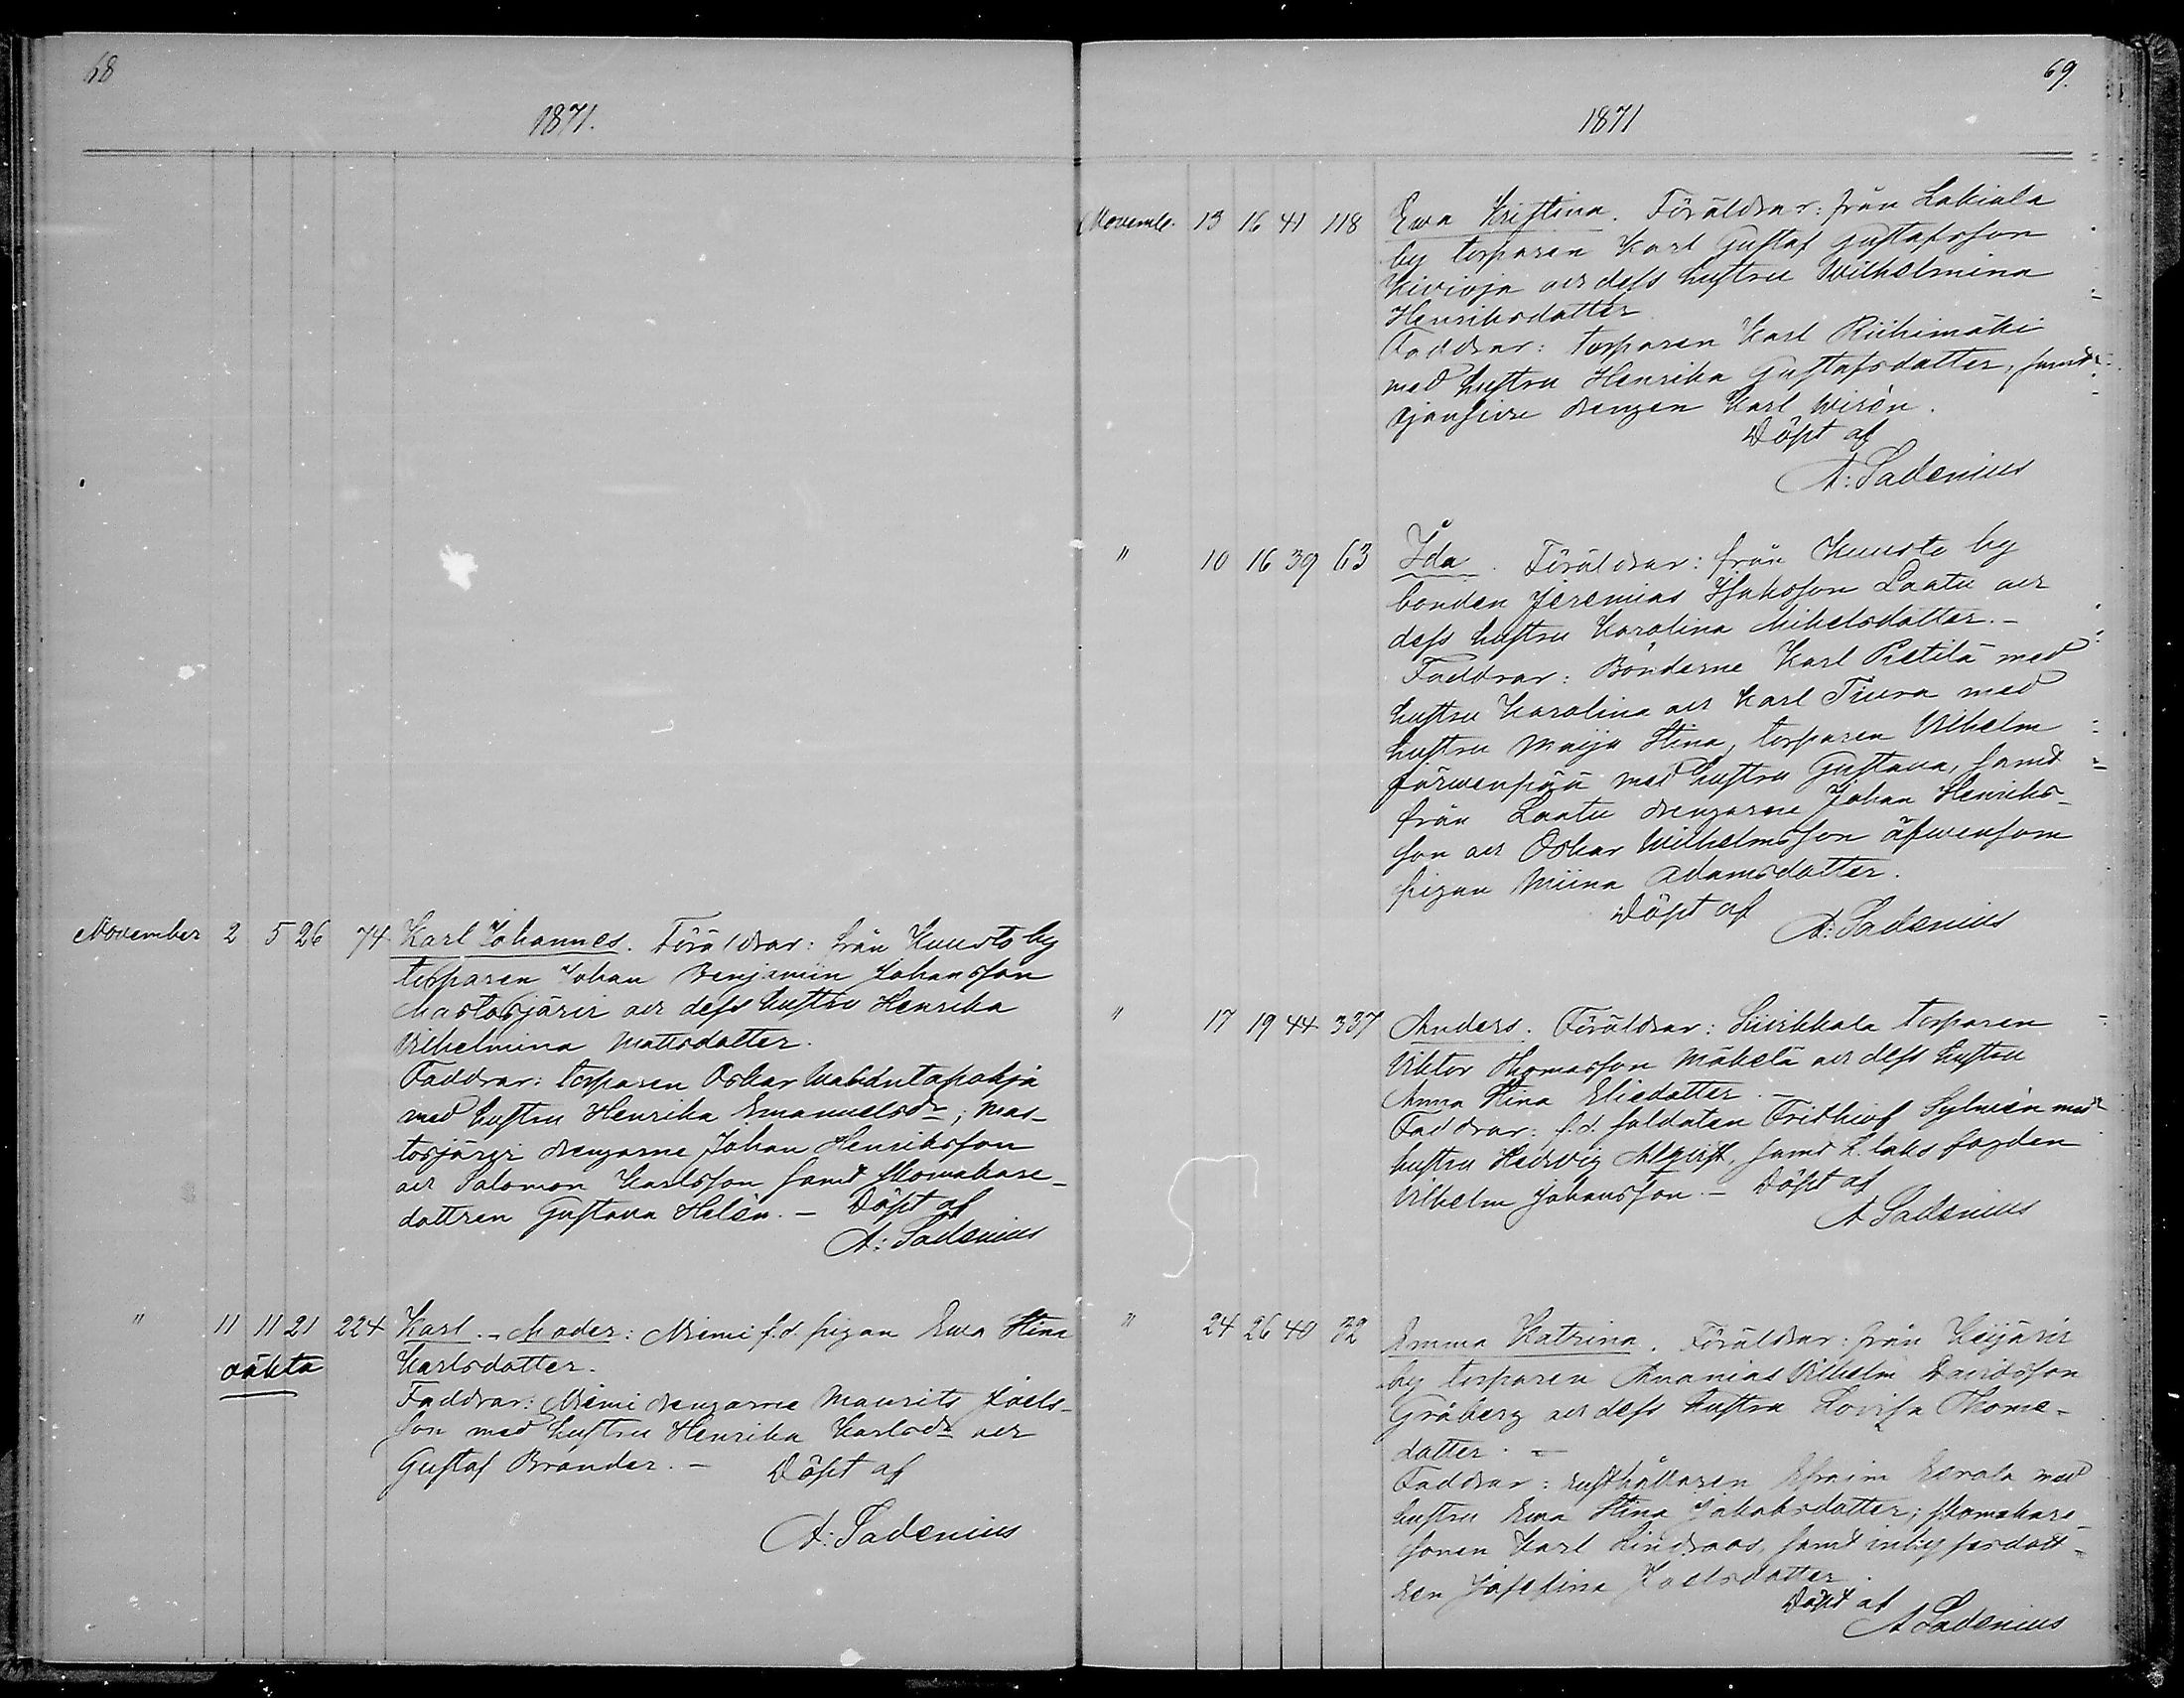 68
1871.
November 2 5 26 74 Karl Johannes. Föräldrar: från Kuusto by
torparen Johan Benjamin Johansson
Mastosjärvi och dess hustru Henrika
Vilhelmina Mattsdotter.
Faddrar: torparen Oskar
med hustru Henrika Emanuelsdr; Mas-
tosjärvi drengarne Johan Henriksson
och Salomon Karlsson samt skomakare-
dottren Gustava Helén. – Döpt af
A: Sadenius
" 11 11 21 224 Karl. – Moder: Niemi f.d. pigan Eva Stina
oäkta Karlsdotter.
Faddrar: Niemi drengarne Maurits Joels-
son med hustru Henrika Karlsdr och
Gustaf Brander. – Döpt af
A: Sadenius
69.
1871
Novemb. 13 16 41 118 Ewa Kristina. Föräldrar: från Lahiala
by torparen Karl Gustaf Gustafsson
Kivioja och dess hustru Wilhelmina
Henriksdotter
Faddrar: torparen Karl Riihimäki
med hustru Henrika Gustafsdotter, samt
Ojansivu drengen Karl Wirén.
Döpt af
A: Sadenius
" 10 16 39 63 Ida. Föräldrar: från Kuusto by
bonden Jeremias Isaksson Laatu och
dess hustru Karolina Mikelsdotter. –
Faddrar: Bönderne Karl Pietilä med
hustru Karolina och Karl Tiura med
hustru Maija Stina, torparen Vilhelm
Järvenpää med hustru Gustava, samt
från Laatu drengarne Johan Henriks-
son och Oskar Wilhelmsson äfvensom
pigan Miina Adamsdotter.
Döpt af
A: Sadenius
" 17 19 44 337 Anders. Föräldrar: Siivikkala torparen
Viktor Thomasson Mäkelä och dess hustru
Anna Stina Eliedotter. –
Faddrar: f.d. soldaten Frithiof Sylvén med
hustru Hedvig Alqvist, samt
Vilhelm Johansson. – Döpt af
A Sadenius
" 24 26 40 32 Emma Katrina. Föräldrar: från Keijärvi
by torparen Ananias Vilhelm Davidsson
Gråberg och dess hustru Lovisa Thome-
dotter. –
Faddrar: rusthållaren Efraim Eerola med
hustru Ewa Stina Jakobsdotter; skomakare-
sonen Karl Lindroos, samt inhysesdott-
ren Josefina Joelsdotter.
Döpt af
A Sadenius